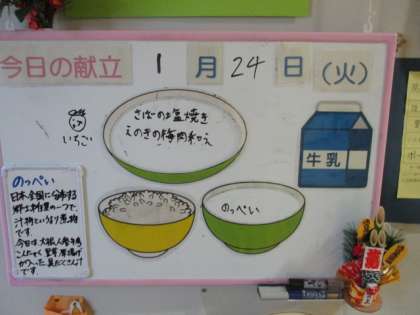 今日の献立 1月24日(火)
さばの塩焼き
えのきの梅肉和え
いちご
牛乳
のっぺい
のっぺい
日本全国に分布する
郷土料理の一つで、
汁物というより煮物
です。
今日は、大根、人参、牛蒡
こんにゃく、里芋、厚揚げ
が入った具だくさん汁
です。